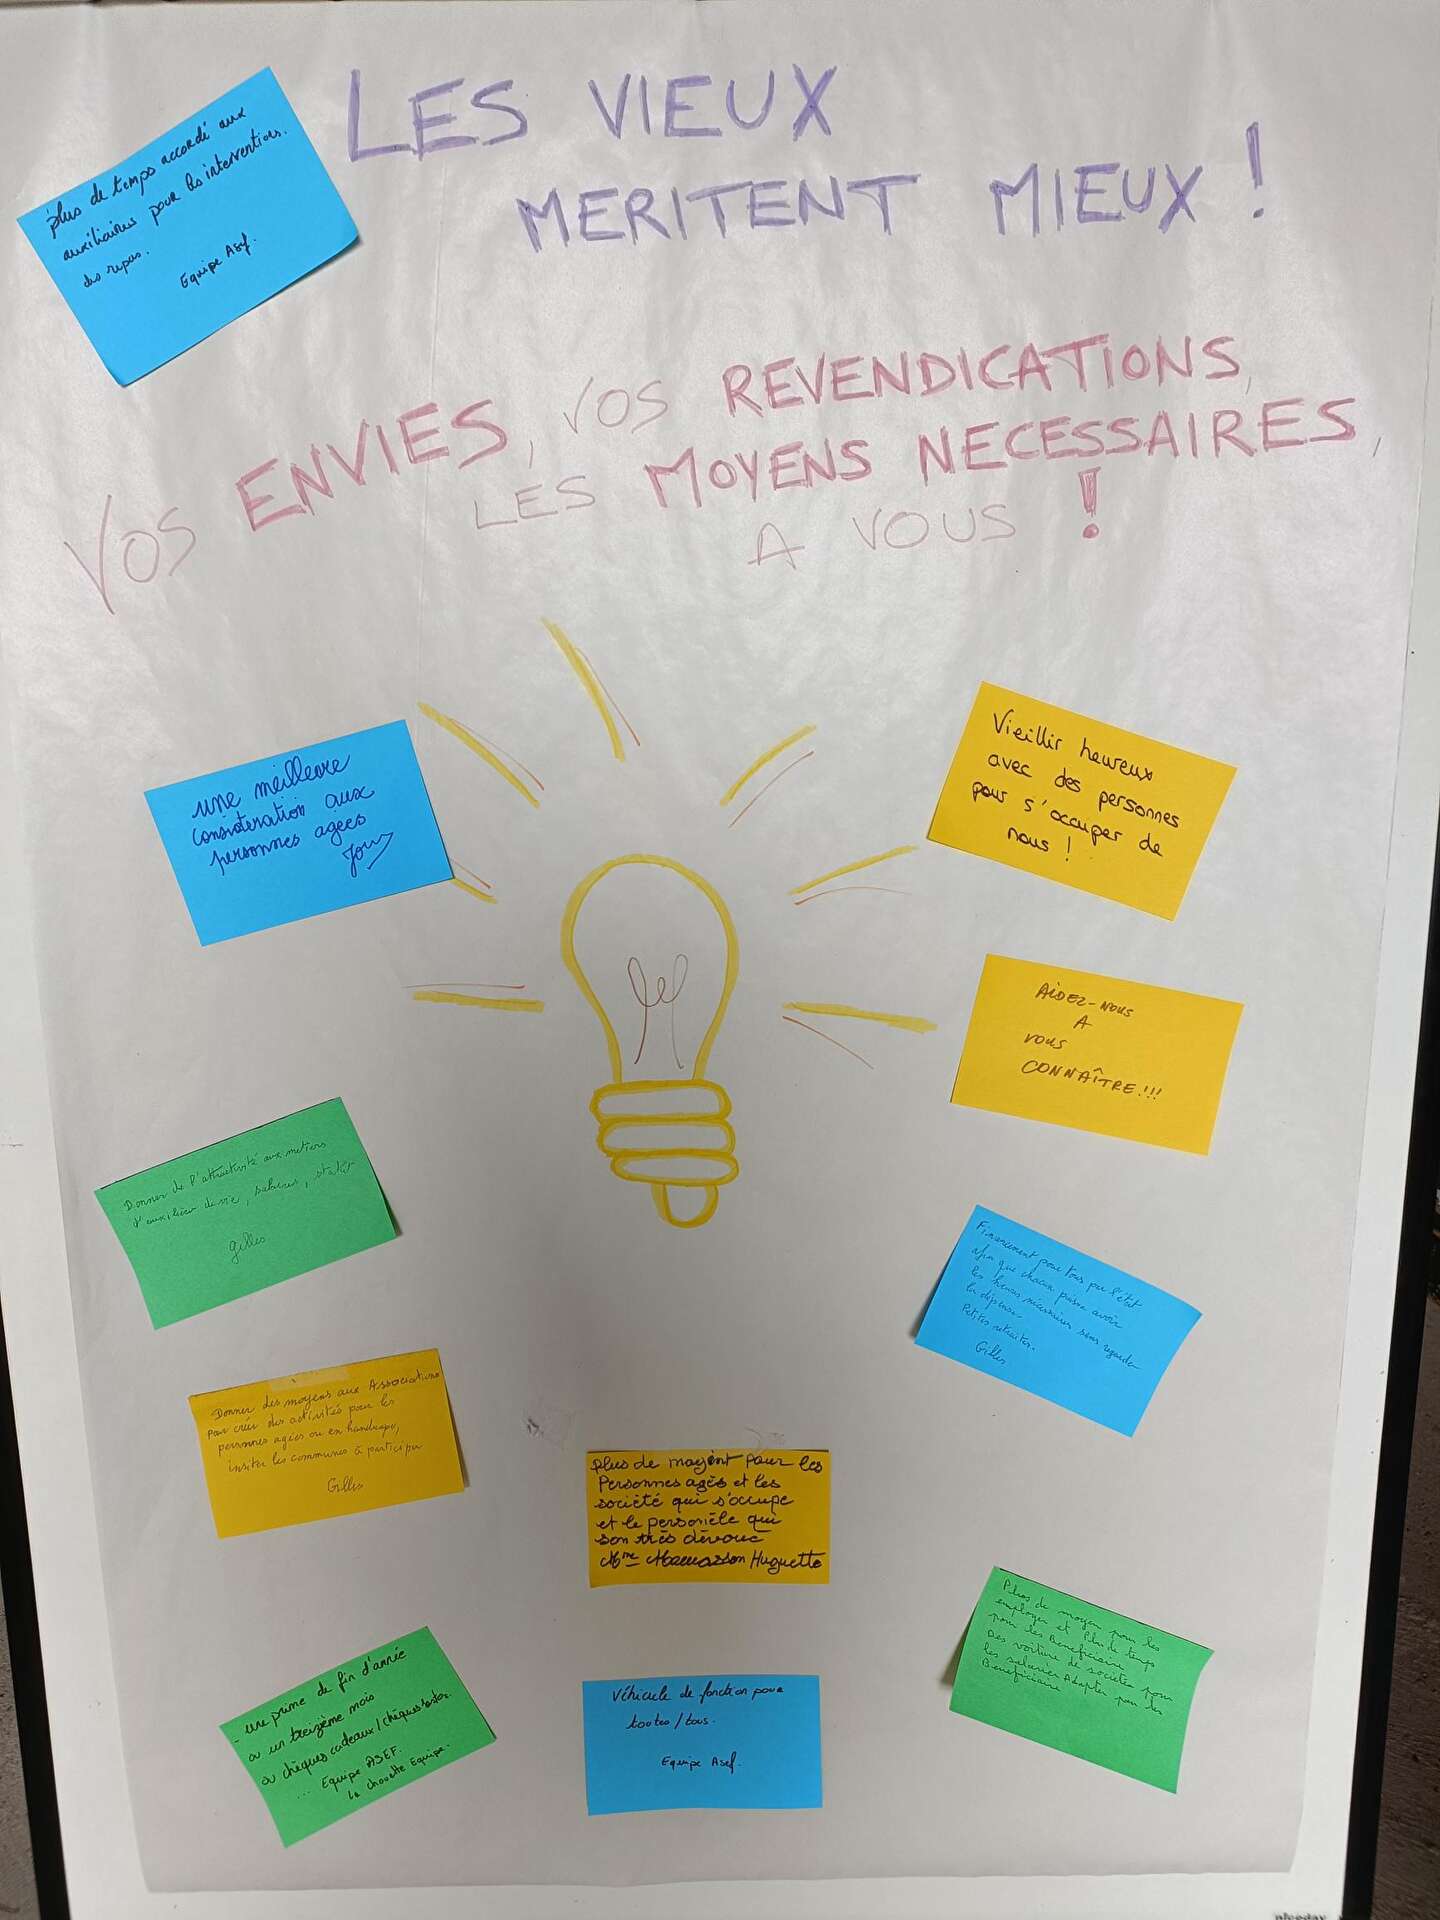 LES VIEUX
MERITENT MIEUX !
plus de temps accordé aux
auxiliaires pour les interventions
des repas.
Equipe Asef.
VOS ENVIES, VOS REVENDICATIONS,
LES MOYENS NECESSAIRES,
A VOUS !
une meilleure
consideration aux
personnes agees
Vieillir heureux
avec des personnes
pour s'occuper de
nous !
AIDEZ-NOUS
A
VOUS
CONNAÎTRE!!!
Donner de l'attractivité aux métiers
d'auxiliaire de vie, salaires, statut
Gilles
Financement pour tous par l'état
afin que chacun puisse avoir
les heures nécessaires sans regarder
la dépense.
Petites retraites.
Gilles
Donner des moyens aux Associations
pour créer des activités pour les
personnes agées ou en handicape,
insiter les communes à participer
Gilles
plus de moyent pour les
Personnes agés et les
société qui s'occupe
et le personèle qui
son très dévoué
Mme Huguette
Plus de moyen pour les
employer et Plus de temps
pour les Beneficiaire
Des voiture de societée pour
les salarier Adapter par les
Beneficiaire
- une prime de fin d'année
ou un treizième mois
ou chèques cadeaux / chèques restos.
... Equipe ASEF.
la chouette Equipe.
Véhicule de fonction pour
toutes/tous.
Equipe Asef.